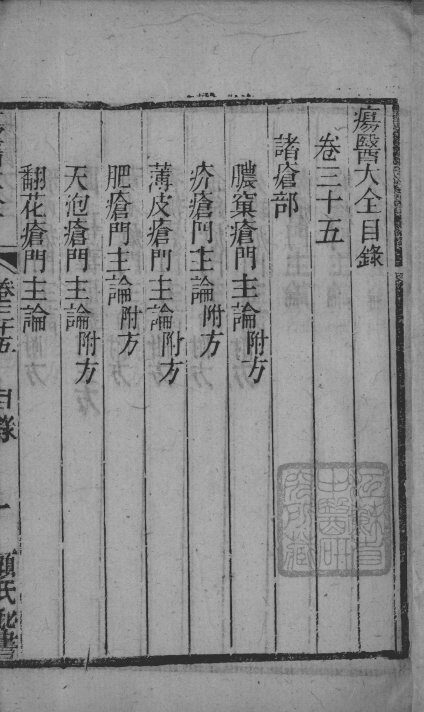 瘍醫大全目錄
卷三十五
諸瘡部
膿窠瘡門主論附方
疥瘡門主論附方
薄皮瘡門主論附方
肥瘡門主論附方
天泡瘡門主論附方
翻花瘡門主論
卷三十五 目錄 一 顧氏秘書
江蘇省中醫研究所藏